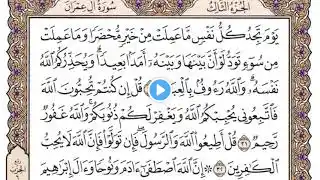 الجزء الثالث
سورة آل عمران
يَوْمَ تَجِدُ كُلُّ نَفْسٍ مَّا عَمِلَتْ مِنْ خَيْرٍ مُّحْضَرًا وَمَا عَمِلَتْ
مِن سُوٓءٍ تَوَدُّ لَوْ أَنَّ بَيْنَهَا وَبَيْنَهُۥٓ أَمَدًۢا بَعِيدًا ۗ وَيُحَذِّرُكُمُ ٱللَّهُ
نَفْسَهُۥ ۗ وَٱللَّهُ رَءُوفٌۢ بِٱلْعِبَادِ قُلْ إِن كُنتُمْ تُحِبُّونَ ٱللَّهَ
فَٱتَّبِعُونِى يُحْبِبْكُمُ ٱللَّهُ وَيَغْفِرْ لَكُمْ ذُنُوبَكُمْ ۗ وَٱللَّهُ غَفُورٌ
رَّحِيمٌ ٣١ قُلْ أَطِيعُوا۟ ٱللَّهَ وَٱلرَّسُولَ ۖ فَإِن تَوَلَّوْا۟ فَإِنَّ ٱللَّهَ لَا يُحِبُّ
ٱلْكَٰفِرِينَ ٣٢ إِنَّ ٱللَّهَ ٱصْطَفَىٰٓ ءَادَمَ وَنُوحًا وَءَالَ إِبْرَٰهِيمَ